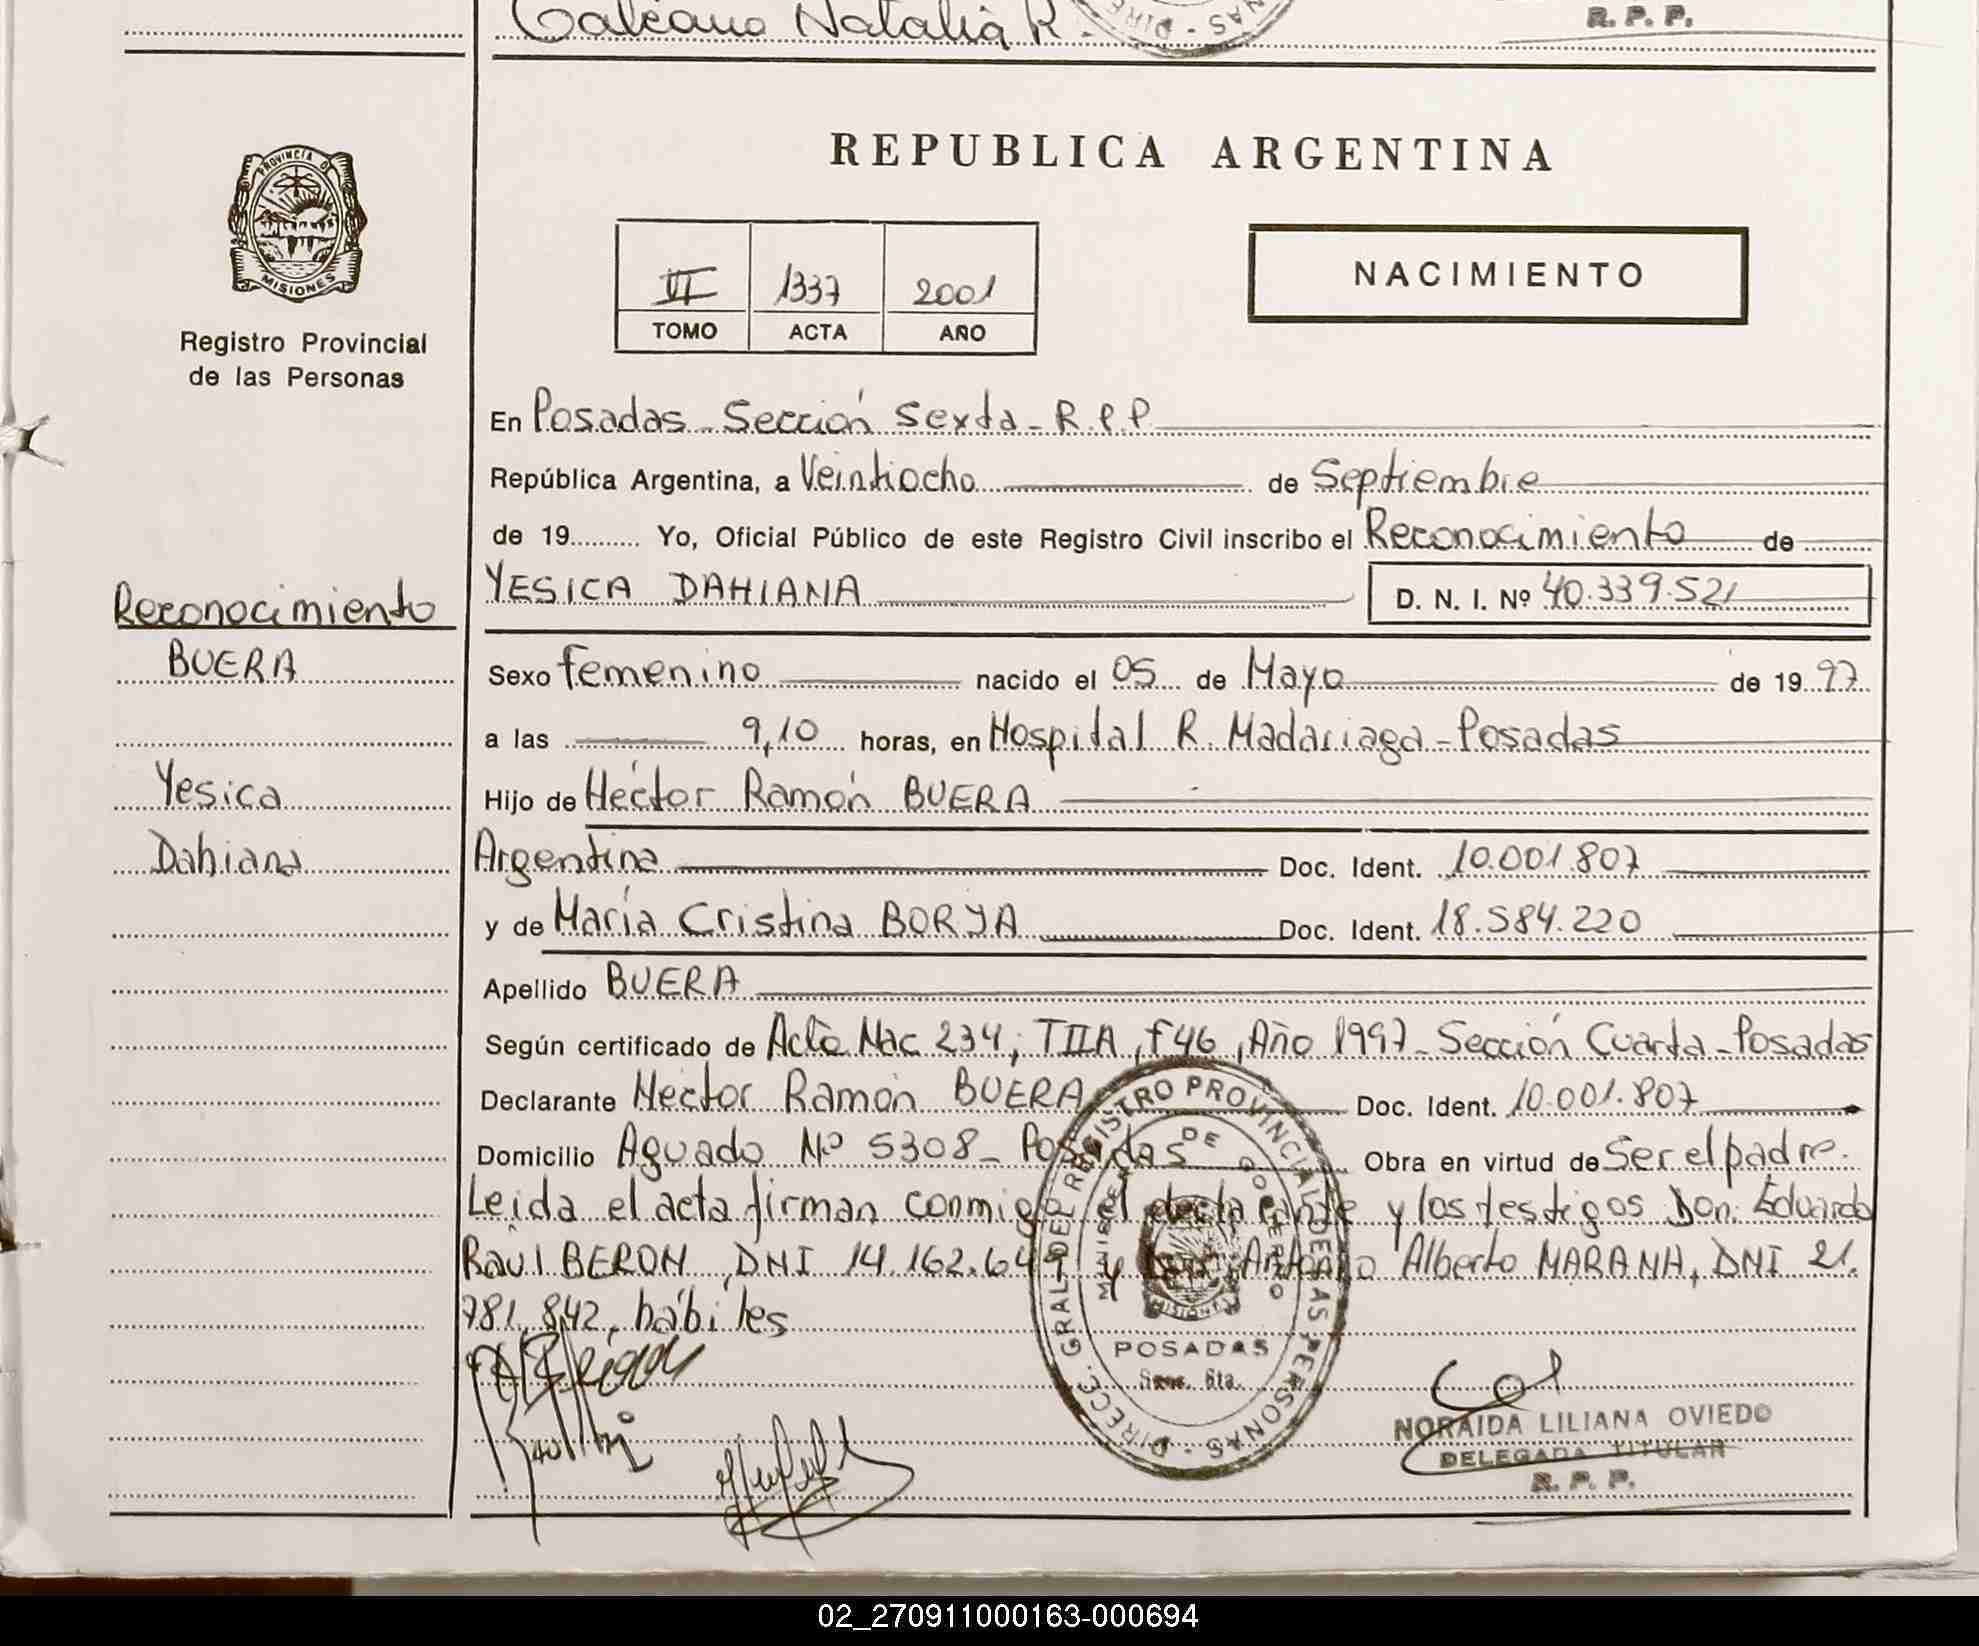 Galeano Natalia R.
R. P. P.
REPUBLICA ARGENTINA
PROVINCIA DE
MISIONES
Registro Provincial
de las Personas
VI 1337 2001
TOMO ACTA AÑO
NACIMIENTO
En Posadas - Sección Sexta - R.P.P.
República Argentina, a Veintiocho de Septiembre
de 19.......... Yo, Oficial Público de este Registro Civil inscribo el Reconocimiento de
YESICA DAHIANA D. N. I. Nº 40.339.521
Reconocimiento
BUERA
Yesica
Dahiana
Sexo femenino nacido el 05 de Mayo de 1997
a las 9,10 horas, en Hospital R. Madariaga - Posadas
Hijo de Héctor Ramón BUERA
Argentina Doc. Ident. 10.001.807
y de María Cristina BORYA Doc. Ident. 18.584.220
Apellido BUERA
Según certificado de Acta Nac 234, TIIA, f 46, Año 1997 - Sección Cuarta - Posadas
Declarante Héctor Ramón BUERA Doc. Ident. 10.001.807
Domicilio Aguado Nº 5308 - Posadas Obra en virtud de Ser el padre.
Leída el acta firman conmigo el declarante y los testigos Don. Eduardo
Raúl BERON, DNI 14.162.649 y Don Antonio Alberto MARANA, DNI 21.
781.842, hábiles
DIRECC. GRAL. DEL REGISTRO PROVINCIAL DE LAS PERSONAS
MINISTERIO DE GOBIERNO
MISIONES
POSADAS
Secc. 6ta.
NORAIDA LILIANA OVIEDO
DELEGADA TITULAR
R. P. P.
02_270911000163-000694